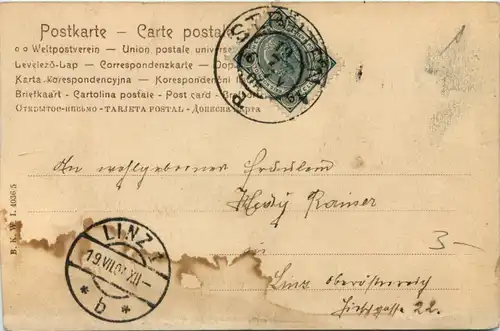 Postkarte - Carte postale
Weltpostverein - Union postale universelle
Levelező-Lap - Correspondenzkarte - Dop
Karta korespondencyjna - Korespondenční l
Briefkaart - Cartolina postale - Post card - Bre
Открытое-письмо - TARJETA POSTAL - Дописна карта
An wohlgeborner Fräulein
Hedy Rainer
3-
Linz oberösterreich
22.
B. K. W. I. 4036/5
LINZ 1
19.VII.0 XII-
* b *